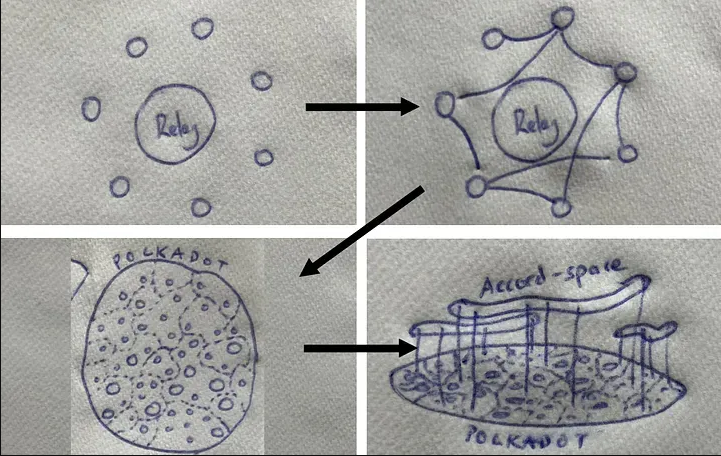 Relay
Relay
POLKADOT
Accord-space
POLKADOT